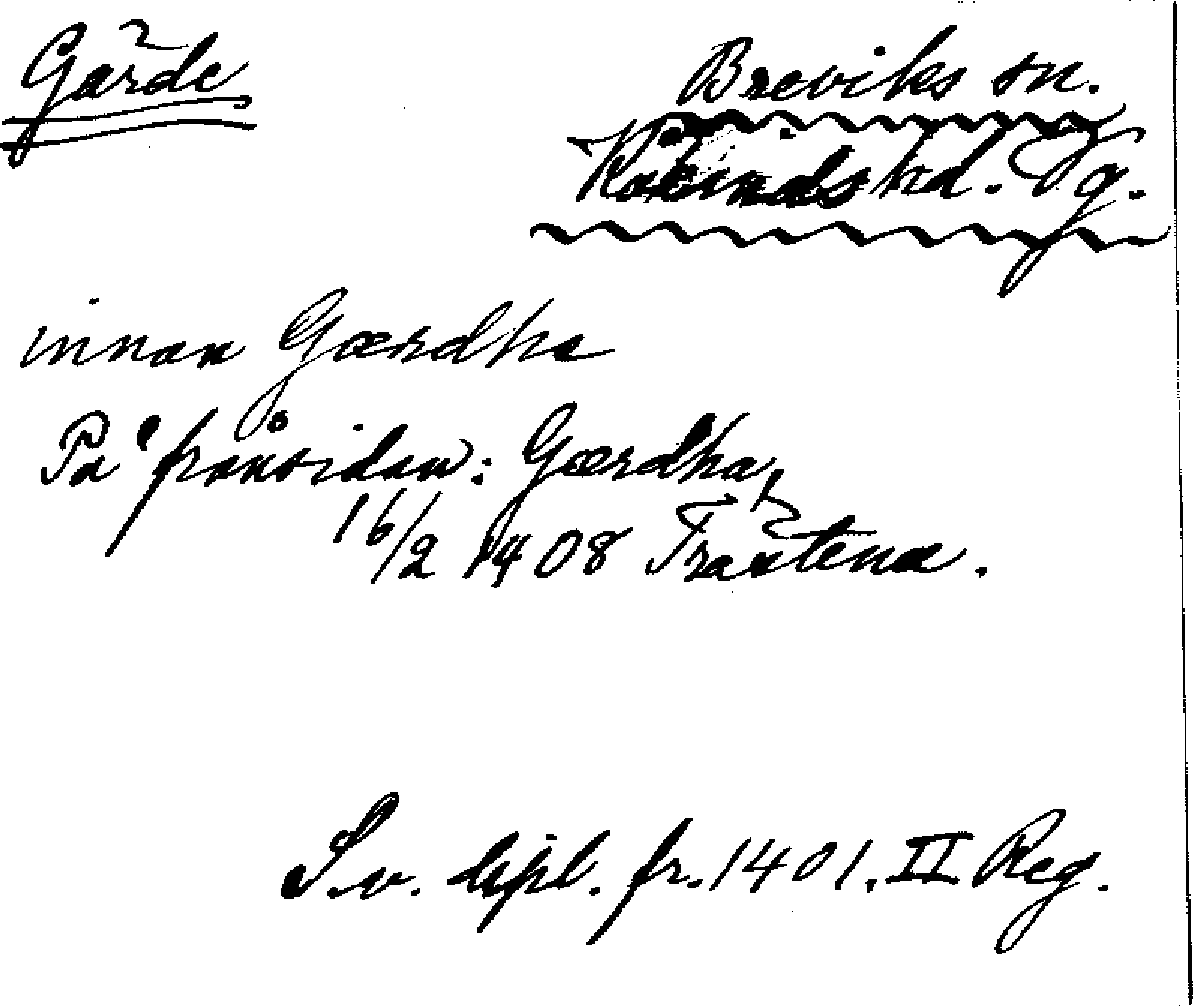 Gärde
Breviks sn.
Kåkinds hd. Vg.
innan Gærdha
På frånsidan: Gærdha,
16/2 1408 Fråstena.
Sv. dipl. fr. 1401. II Reg.